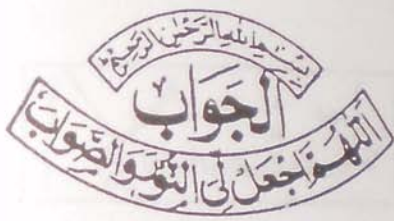 بِسْمِ اللهِ الرَّحْمٰنِ الرَّحِيْمِ
الْجَوَابُ
اَللّٰهُمَّ اجْعَلْ لِّیَ النُّوْرَ وَالصَّوَابَ